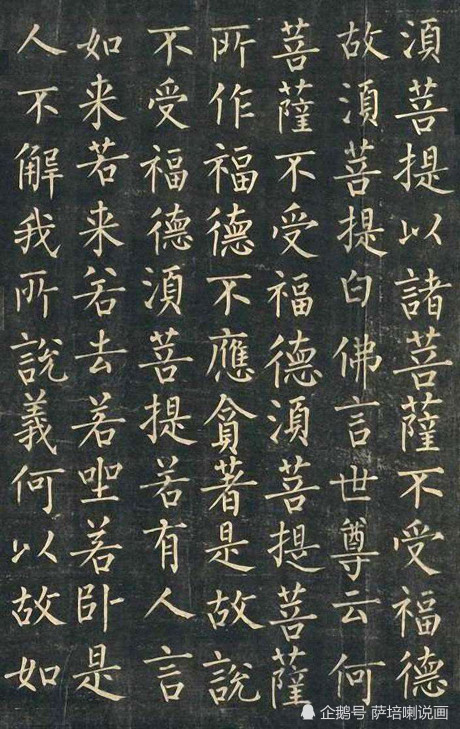 須菩提以諸菩薩不受福德
故須菩提白佛言世尊云何
菩薩不受福德須菩提菩薩
所作福德不應貪著是故說
不受福德須菩提若有人言
如来若来若去若坐若卧是
人不解我所說義何以故如
企鹅号 萨培喇说画